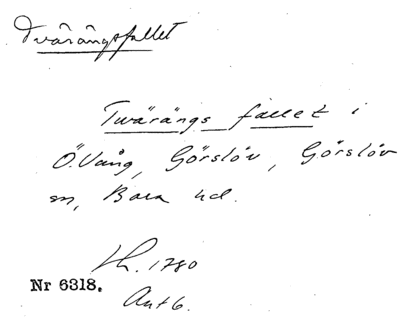 Tvärängsfallet
Twärängs fallet i
Ö.Vång, Görslöv, Görslöv
sn, Bara hd.
Lh. 1780
Nr 6318.
Ant 6.